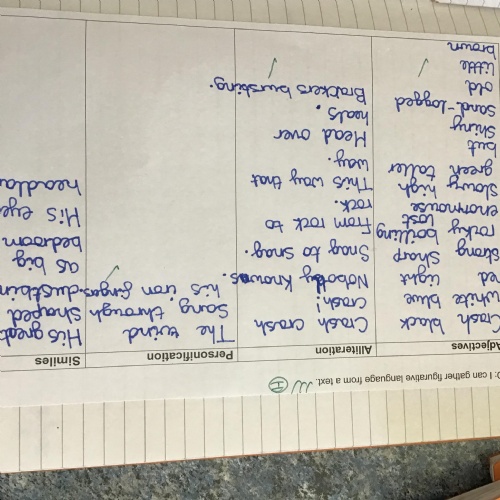 O: I can gather figurative language from a text.
Adjectives
Crash black
white blue
red light
strong Sharp
rocky boilling
enormouse last
slowy high
green taller
but
shiny
sand-logged
old
little
brown
Alliteration
Crash crash
crash!
Nobody knows.
Snag to snag.
from rock to
rock.
This way that
way.
Head over
heals.
Brackers bursting.
Personification
The wind
Sang through
his iron fingers.
Similes
His great
shaped
dustbin
as big
bedroom
His eye